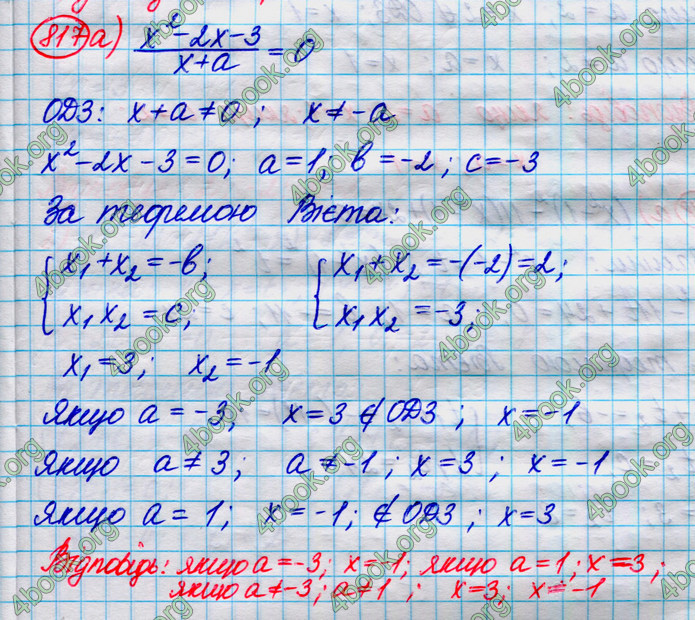 817 а) (x²-2x-3)/(x+a) = 0
ОДЗ: x+a≠0; x≠-a
x²-2x-3=0; a=1; b=-2; c=-3
За теоремою Вієта:
{ x₁+x₂=-b; { x₁+x₂=-(-2)=2;
x₁x₂=c; x₁x₂=-3;
x₁=3; x₂=-1
Якщо a=-3; x=3 ∉ ОДЗ; x=-1
Якщо a≠3; a≠-1; x=3; x=-1
Якщо a=1; x=-1; ∉ ОДЗ; x=3
Відповідь: якщо a=-3; x=-1; якщо a=1; x=3;
якщо a≠-3; a≠1; x=3; x=-1
4book.org